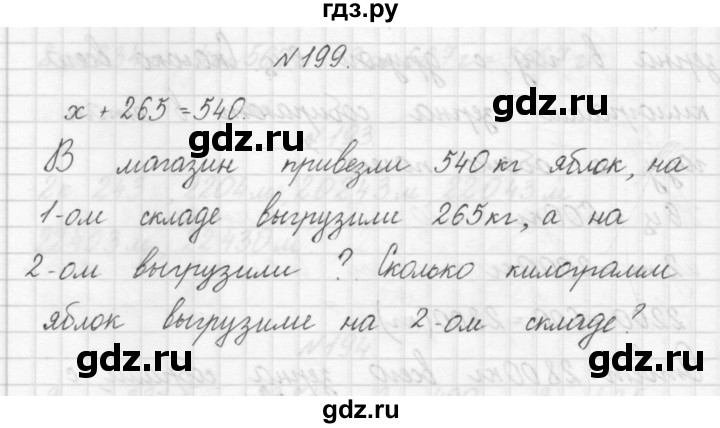 гдз.ру
№199.
x + 265 = 540.
В магазин привезли 540 кг яблок, на
1-ом складе выгрузили 265 кг, а на
2-ом выгрузили ? Сколько килограмм
яблок выгрузили на 2-ом складе?
gdz.ru
gdz.ru
gdz.ru
gdz.ru
gdz.ru